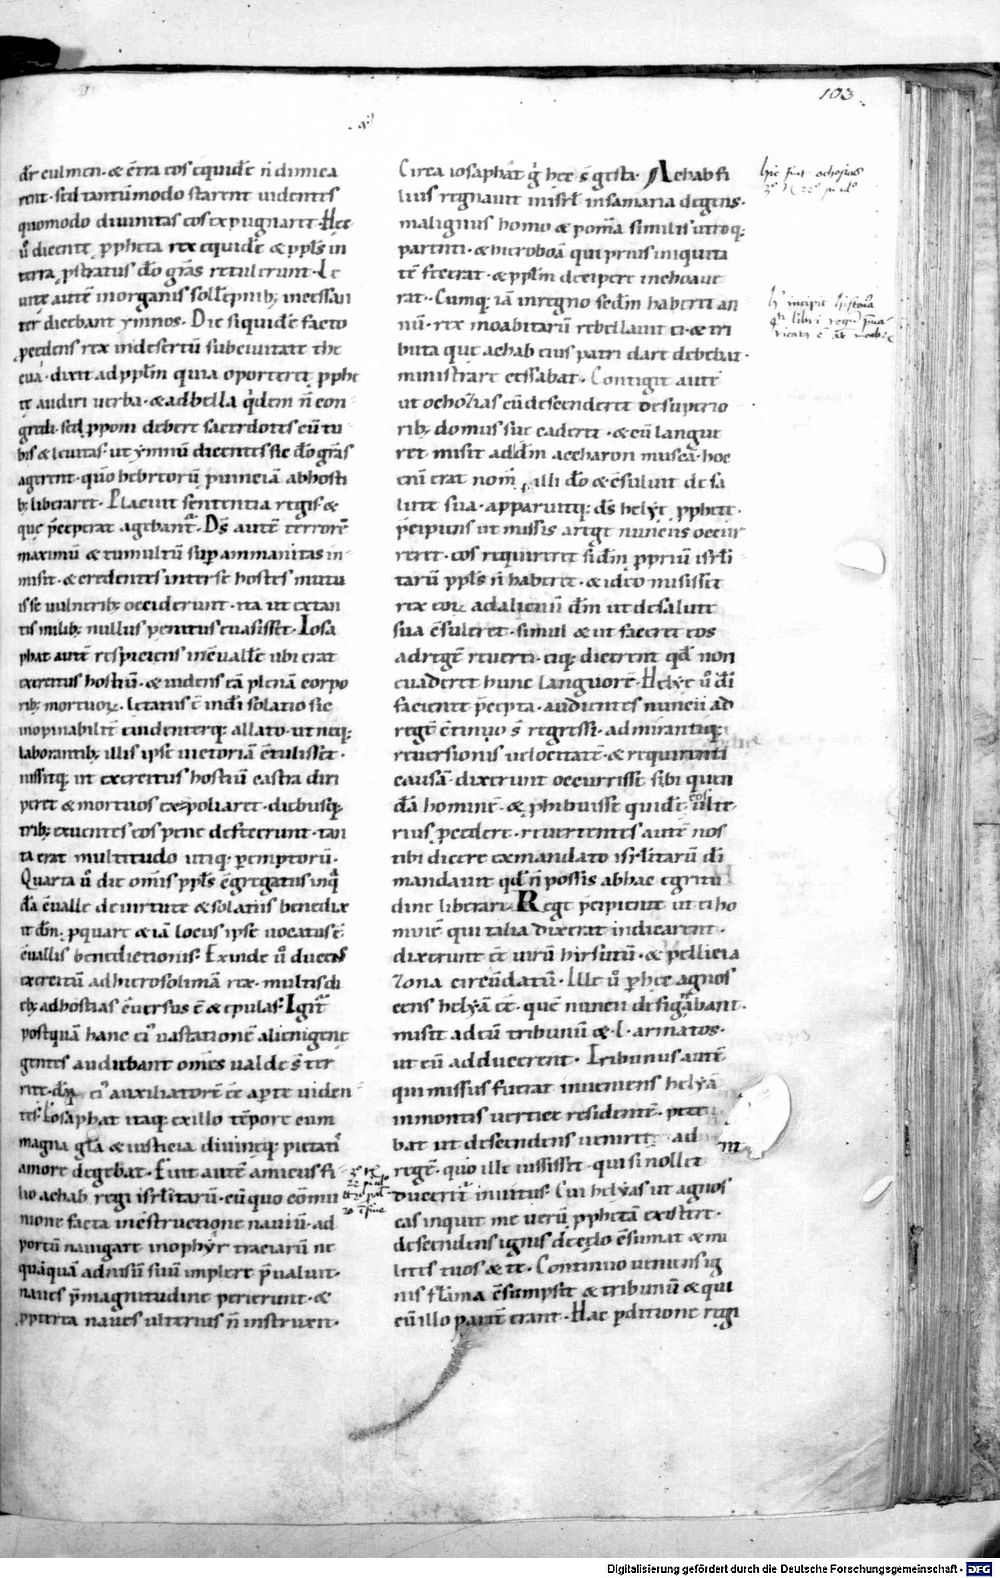 103
dr̄ culmen · & ẽtra eos equidẽ ñ dimica
rent · sed tantũmodo starent uidentes
quomodo diuinitas eos expugnaret · Hęc
u̾ dicente ꝓpheta rex equidẽ & ppl̃s in
terra ꝓstratus dõ gr̃as retulerunt · Le
uitę autẽ in organis sollẽpnib; incessan
ter dicebant ymnos · Die siquidẽ facto
ꝓcedens rex in desertũ sub ciuitate the
cua · dixit ad ppl̃m quia oporteret ꝓphe
tę audiri uerba · & ad bella q̃dem ñ con
gredi · sed p̃poni debere sacerdotes cũ tu
bis & leuitas · ut ymnũ dicentes sic dõ gr̃as
agerent · quõ hebreorũ ꝓuinciã ab hosti
b; liberaret · Placuit sententia regis &
que p̃ceperat agebant̃ · D̃s autẽ terrorẽ
maximũ & tumultũ sup ammanitas in
misit · & credentes inter se hostes mutu
is se uulnerib; occiderunt · ita ut ex tan
tis milib; nullus penitus euasisset · Iosa
phat autẽ respiciens in c̃uallẽ ubi erat
exercitus hostiũ · & uidens eã plenã corpo
rib; mortuoꝝ · letatus ẽ in dĩ solatio sic
inopinabilit̃ euidenterq; allato · ut neq;
laborantib; illis ipse uictoriã c̃tulisset ·
iussitq; ut exercitus hostiũ castra diri
peret & mortuos expoliaret · diebusq;
trib; exuentes eos pene defecerunt · tan
ta erat multitudo utiq; ꝑemptorũ ·
Quarta u̾ die om̃is ppl̃s c̃gregatus in q̃
dã c̃ualle de uirtute & solatiis benedix
it dñm · ꝓ quare & iã locus ipse uocatus ẽ
c̃uallis benedictionis · Exinde u̾ ducens
exercitũ ad hierosolimã rex · multis di
eb; ad hostias c̃uersus ẽ & epulas · Igit̃
postquã hanc ei' uastationẽ alienigenę
gentes audiebant om̃es ualde s̃ ter
ritę · dñm ei' auxiliatorẽ ẽẽ aperte uiden
tes · Iosaphat itaq; ex illo tẽpore cum
magna gl̃a & iusticia diuineq; pietatis
amore degebat · Fuit autẽ amicus fi
lio achab regi isrl̃itarũ · cũ quo cõmu
nione facta in c̃structione nauiũ · ad
portũ nauigare in ophyr traciarũ ne
quaquã ad uisũ suũ implere p̃ualuit ·
naues p̃ magnitudine perierunt · &
ꝓpterea naues ulterius ñ instruxit ·
Circa iosaphat g̾ hęc s̃ gesta · Achab fi
lius regnauit in isrl̃ in samaria degens ·
malignus homo & p om̃ia similis utriq;
parenti · & hieroboã qui prius iniquita
tẽ fecerat · & ppl̃m decipere inchoaue
rat · Cumq; iã in regno sedm̃ haberet an
nũ · rex moabitarũ rebellauit ei · & tri
buta quę achab eius patri dare debebat ·
ministrare cessabat · Contigit autẽ
ut ochozias cũ descenderet de superio
rib; domus suę caderet · & cũ langue
ret misit ad dm̃ accharon muscã · hoc
enĩ erat nom̃ illi dõ & c̃suluit de sa
lute sua · apparuitq; d̃s helyę ꝓphetę ·
p̃cipiens ut missis a rege nunciis occur
reret · eos requireret si dm̃ ꝓpriũ isrl̃i
tarũ ppl̃s ñ haberet · & ideo misisset
rex eoꝝ ad alienũ dm̃ ut de salute
sua c̃suleret · simul & ut faceret eos
ad regẽ reuerti · eiq; dicerent qd̃ non
euaderet hunc languorẽ · Helye u̾ dĩ
faciente p̃cepta · audientes nuncii ad
regẽ c̃tinuo s̃ regressi · admirantiq;
reuersionis uelocitatẽ · & requirenti
causã · dixerunt occurrisse sibi quen
dã hominẽ · & ꝓhibuisse quidẽ eos ulte
rius ꝓcedere · reuertentes autẽ nos
tibi dicere ex mandato isrl̃itarũ dĩ
mandauit qd̃ ñ possis ab hac egritu
dine liberari · Rege p̃cipiente ut ei ho
minẽ qui talia dixerat indicarent ·
dixerunt ẽẽ uirũ hirsutũ · & pellicia
zona circũdatũ · Ille u̾ ꝑ hęc agnos
cens helyã ẽẽ · quẽ nuncii designabant ·
misit ad eũ tribunũ & · l · armatos ·
ut eũ adducerent · Tribunus autẽ
qui missus fuerat inueniens helyã
in montis uertice residentẽ · pete
bat ut descendens ueniret ad
regẽ · quo ille iussisset · qui si nollet
duceret̃ inuitus · Cui helyas ut agnos
cas inquit me uerũ ꝓphetã existere ·
descendens ignis de cęlo c̃sumat & mi
lites tuos & te · Continuo ueniens ig
nis flãma c̃sumpsit & tribunũ & qui
cũ illo parit̃ erant · Hac ꝑditione regi
hic fuit ochosias
Digitalisierung gefördert durch die Deutsche Forschungsgemeinschaft - DFG